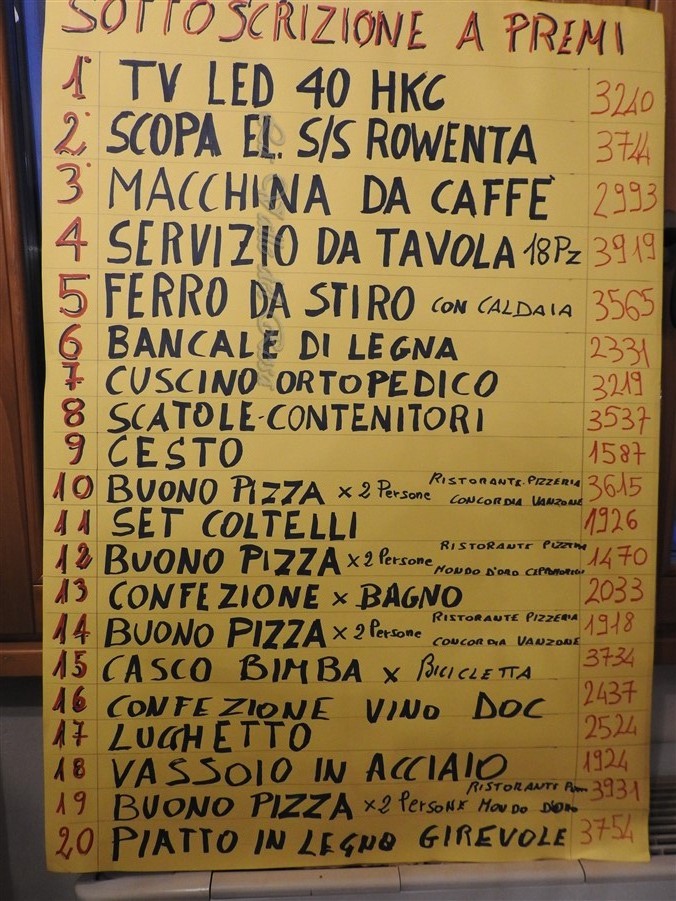 SOTTOSCRIZIONE A PREMI
1° TV LED 40 HKC 3240
2° SCOPA EL. S/S ROWENTA 3744
3° MACCHINA DA CAFFE' 2993
4 SERVIZIO DA TAVOLA 18Pz 3919
5 FERRO DA STIRO CON CALDAIA 3565
6 BANCALE DI LEGNA 2331
7 CUSCINO ORTOPEDICO 3219
8 SCATOLE-CONTENITORI 3537
9 CESTO 1587
10 BUONO PIZZA x 2 Persone RISTORANTE-PIZZERIA CONCORDIA VANZONE 3615
11 SET COLTELLI 1926
12 BUONO PIZZA x 2 Persone RISTORANTE PIZZERIA MONDO D'ORO 1470
13 CONFEZIONE x BAGNO 2033
14 BUONO PIZZA x 2 Persone RISTORANTE PIZZERIA CONCORDIA VANZONE 1918
15 CASCO BIMBA x BICICLETTA 3734
16 CONFEZIONE VINO DOC 2437
17 LUCHETTO 2524
18 VASSOIO IN ACCIAIO 1924
19 BUONO PIZZA x 2 PERSONE RISTORANTE MONDO D'ORO 3931
20 PIATTO IN LEGNO GIREVOLE 3754